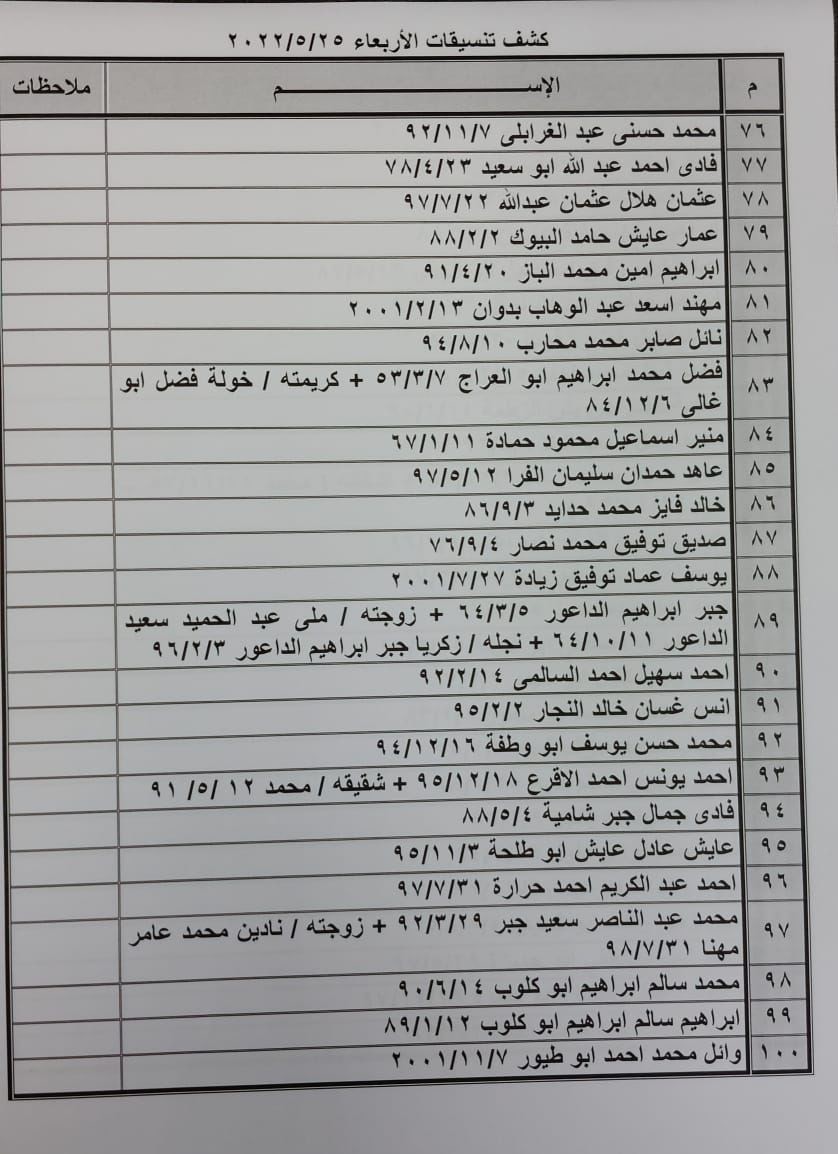 كشف تنسيقات الأربعاء ٢٠٢٢/٥/٢٥
م الإســـــــــــم ملاحظات
٧٦ محمد حسنى عبد الغرابلى ٩٢/١١/٧
٧٧ فادى احمد عبد الله ابو سعيد ٧٨/٤/٢٣
٧٨ عثمان هلال عثمان عبدالله ٩٧/٧/٢٢
٧٩ عمار عايش حامد البيوك ٨٨/٢/٢
٨٠ ابراهيم امين محمد الباز ٩١/٤/٢٠
٨١ مهند اسعد عبد الوهاب بدوان ٢٠٠١/٢/١٣
٨٢ نائل صابر محمد محارب ٩٤/٨/١٠
٨٣ فضل محمد ابراهيم ابو العراج ٥٣/٣/٧ + كريمته / خولة فضل ابو
غالى ٨٤/١٢/٦
٨٤ منير اسماعيل محمود حمادة ٦٧/١/١١
٨٥ عاهد حمدان سليمان الفرا ٩٧/٥/١٢
٨٦ خالد فايز محمد حدايد ٨٦/٩/٣
٨٧ صديق توفيق محمد نصار ٧٦/٩/٤
٨٨ يوسف عماد توفيق زيادة ٢٠٠١/٧/٢٧
٨٩ جبر ابراهيم الداعور ٦٤/٣/٥ + زوجته / ملى عبد الحميد سعيد
الداعور ٦٤/١٠/١١ + نجله / زكريا جبر ابراهيم الداعور ٩٦/٢/٣
٩٠ احمد سهيل احمد السالمى ٩٢/٢/١٤
٩١ انس غسان خالد النجار ٩٥/٢/٢
٩٢ محمد حسن يوسف ابو وطفة ٩٤/١٢/١٦
٩٣ احمد يونس احمد الاقرع ٩٥/١٢/١٨ + شقيقه / محمد ١٢ /٥/ ٩١
٩٤ فادى جمال جبر شامية ٨٨/٥/٤
٩٥ عايش عادل عايش ابو طلحة ٩٥/١١/٣
٩٦ احمد عبد الكريم احمد حرارة ٩٧/٧/٣١
٩٧ محمد عبد الناصر سعيد جبر ٩٢/٣/٢٩ + زوجته / نادين محمد عامر
مهنا ٩٨/٧/٣١
٩٨ محمد سالم ابراهيم ابو كلوب ٩٠/٦/١٤
٩٩ ابراهيم سالم ابراهيم ابو كلوب ٨٩/١/١٢
١٠٠ وائل محمد احمد ابو طيور ٢٠٠١/١١/٧